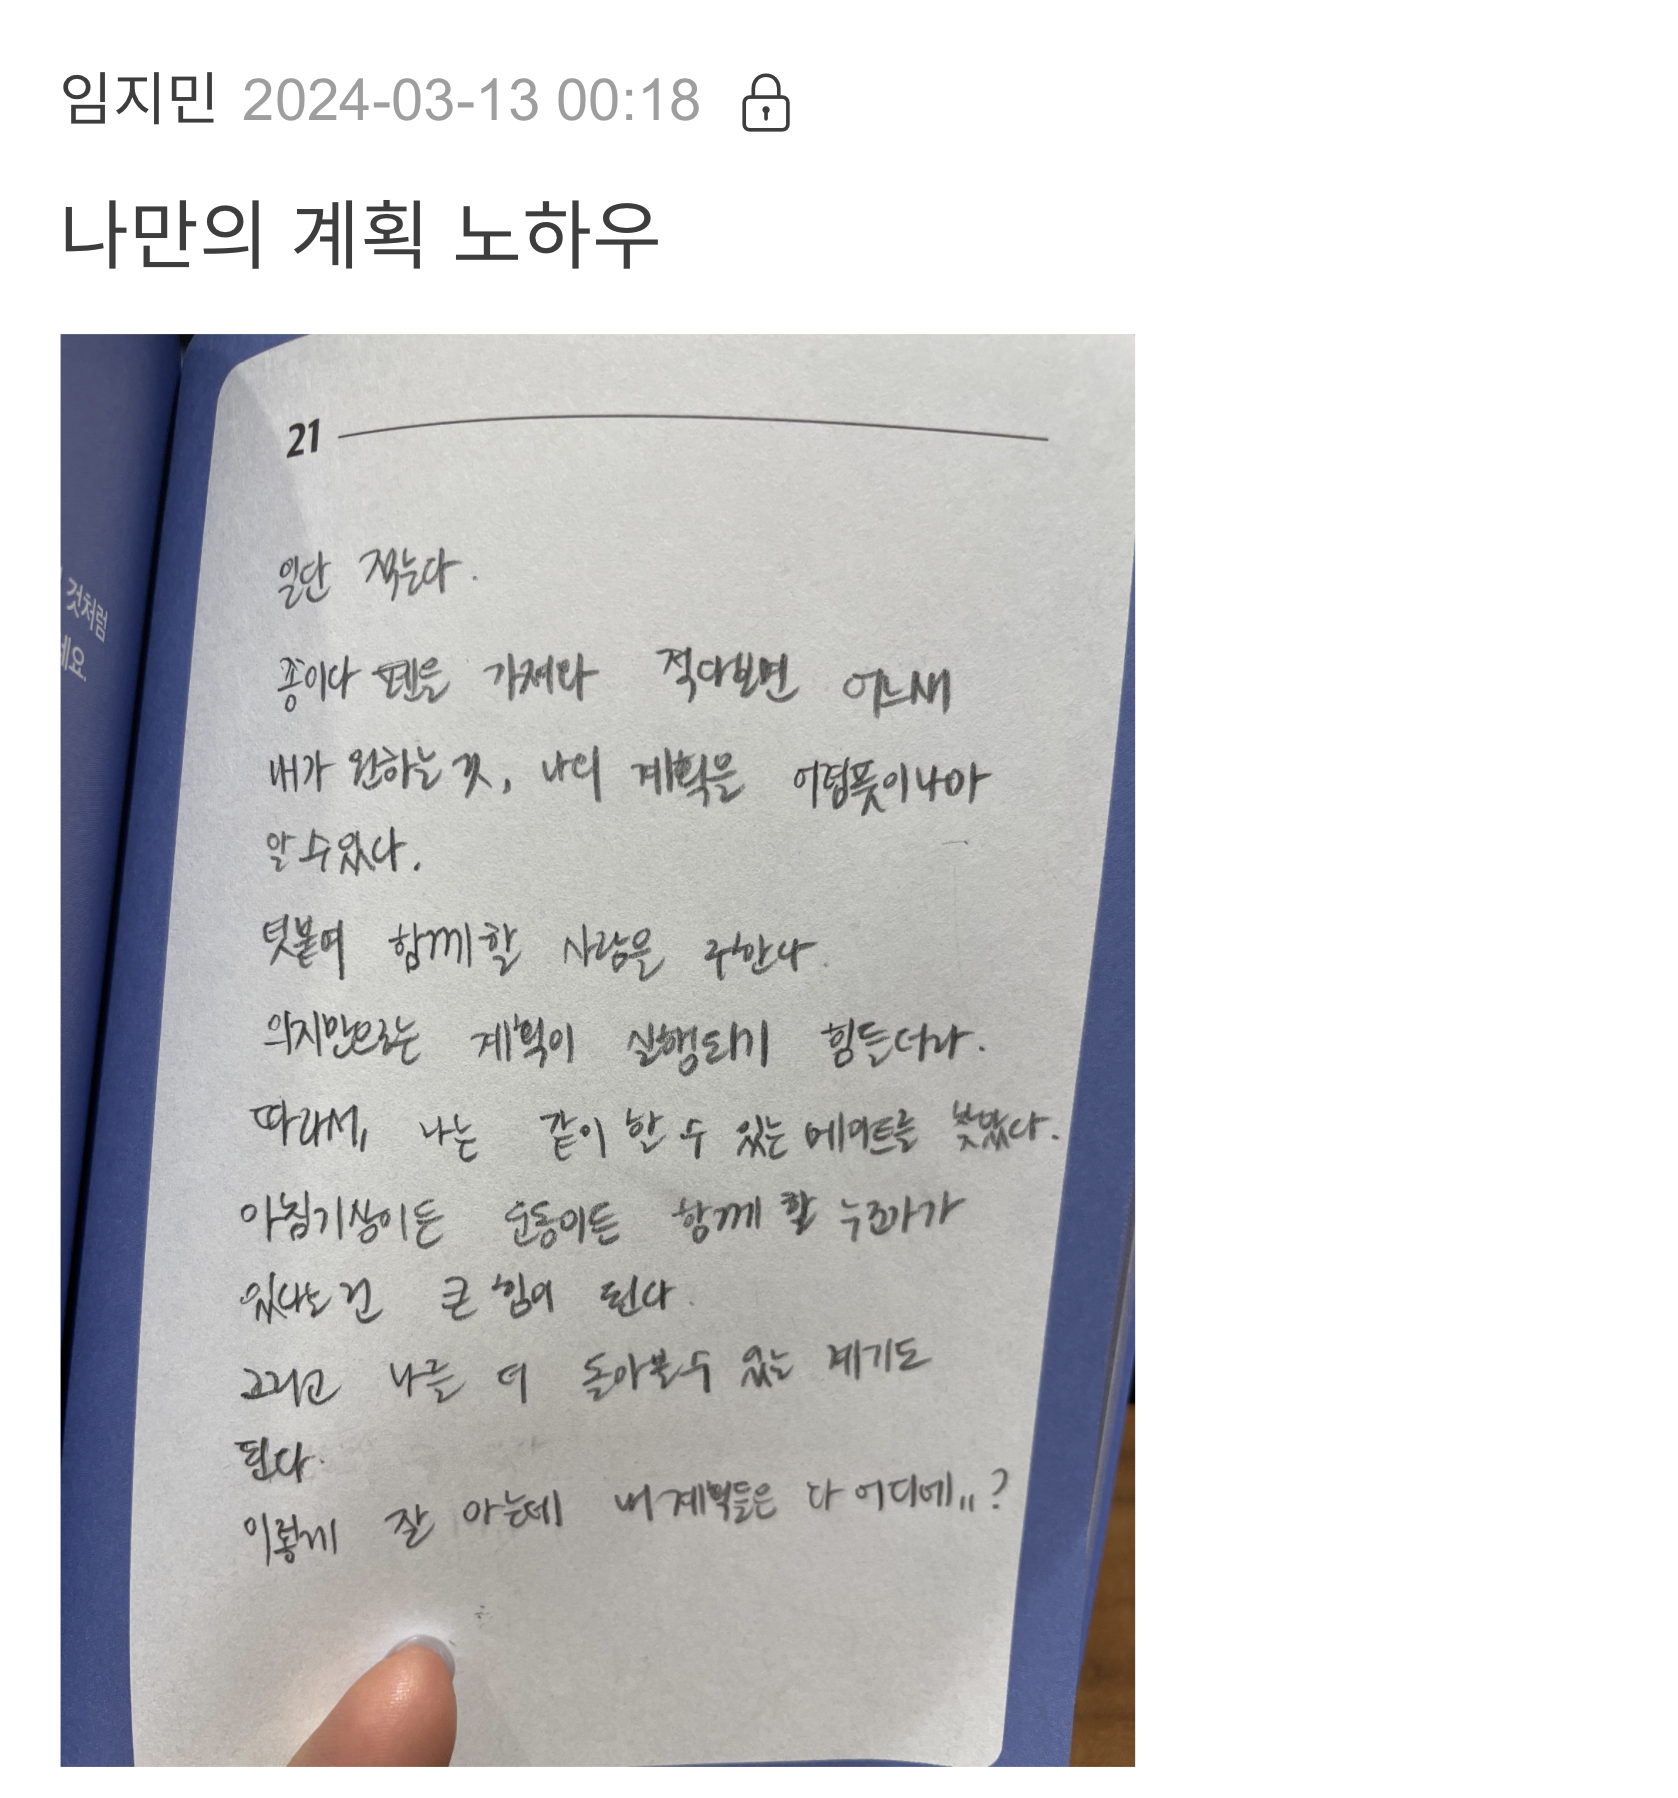 임지민 2024-03-13 00:18
나만의 계획 노하우
것처럼
세요.
21
일단 적는다.
종이다 펜을 가져와 적다보면 어느새
내가 원하는 것, 나의 계획을 어렴풋이나마
알 수 있다.
덧붙여 함께할 사람을 구한다.
의지만으로는 계획이 실행되기 힘들더라.
따라서, 나는 같이 할 수 있는 메이트를 찾았다.
아침기상이든 운동이든 함께 할 누군가가
있다는 건 큰 힘이 된다.
그리고 나를 더 돌아볼 수 있는 계기도
된다.
이렇게 잘 아는데 내 계획들은 다 어디에..?